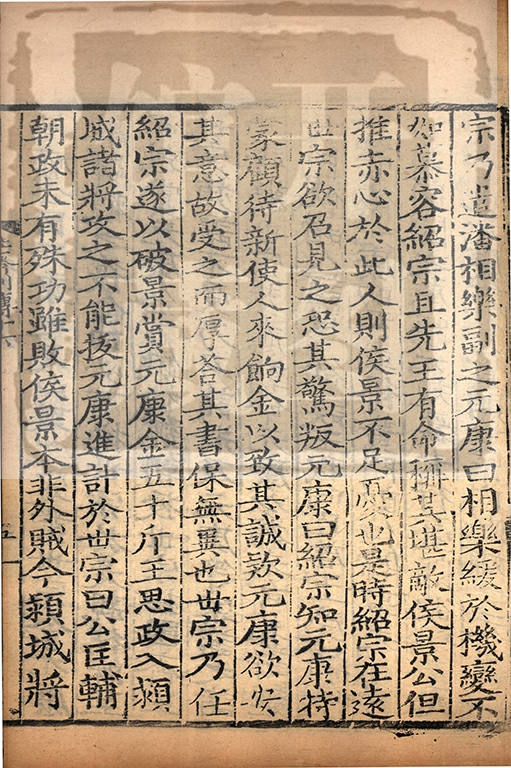 宗乃遣潘相樂副之元康曰相樂緩於機變不
如慕容紹宗且先王有命稱其堪敵侯景公但
推赤心於此人則侯景不足憂也是時紹宗在遠
世宗欲召見之恐其驚叛元康曰紹宗知元康特
蒙顧待新使人來餉金以致其誠款元康欲安
其意故受之而厚荅其書保無異也世宗乃任
紹宗遂以破景賞元康金五十斤王思政入潁
城諸將攻之不能拔元康進計於世宗曰公匡輔
朝政未有殊功雖敗侯景本非外賊今潁城將
五